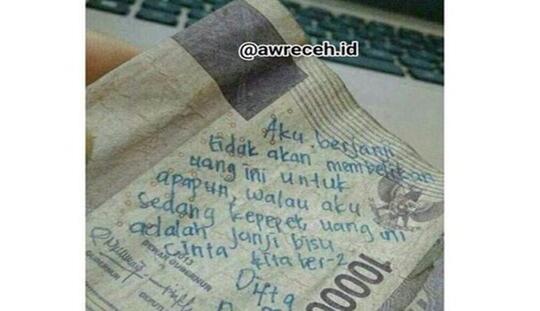 @awreceh.id
Aku berjanji
tidak akan membelikan
uang ini untuk
apapun, walau aku
sedang kepepet, uang ini
adalah janji bisu
cinta kita ber-2
Difta
2013
DEWAN GUBERNUR
GUBERNUR